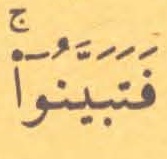 فَتَبَيَّنُوٓا۟ ۚ